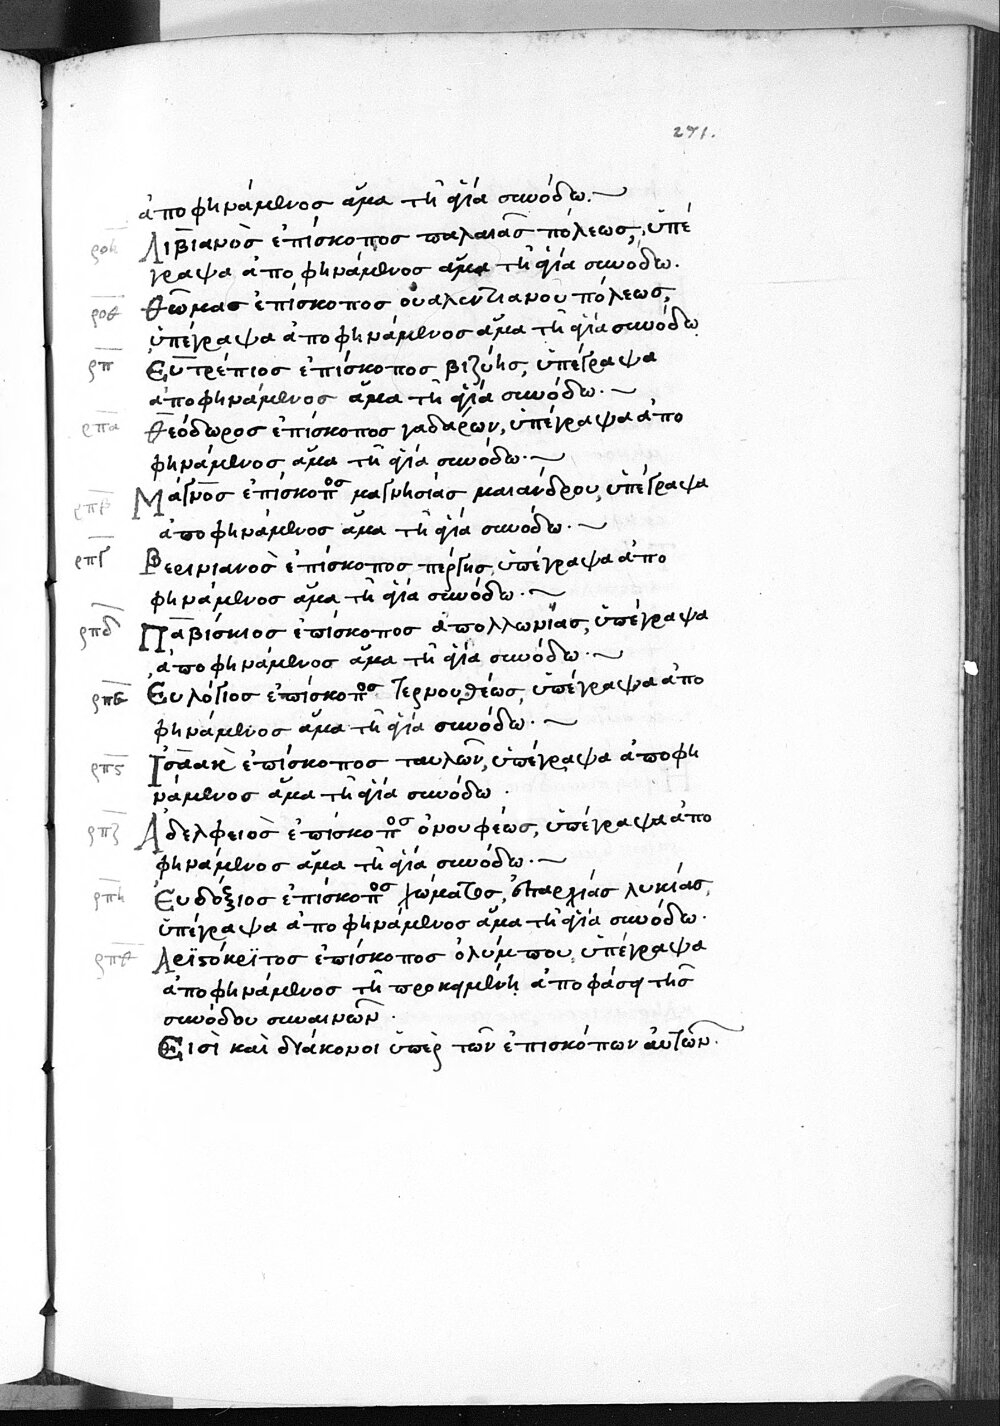 271.
ἀποφηνάμενος ἅμα τῆ ἁγία συνόδω.
ροη Λιβιανὸς ἐπίσκοπος παλαιᾶς πόλεως, ὑπέ
γραψα ἀποφηνάμενος ἅμα τῆ ἁγία συνόδω.
ροθ Θωμας ἐπίσκοπος οὐαλεντιανουπόλεως,
ὑπέγραψα ἀποφηνάμενος ἅμα τῆ ἁγία συνόδω
ρπ Εὐτρέπιος ἐπίσκοπος βιζύης, ὑπέγραψα
ἀποφηνάμενος ἅμα τῆ ἁγία συνόδω.
ρπα Θεόδωρος ἐπίσκοπος γαδάρων, ὑπέγραψα ἀπο
φηνάμενος ἅμα τῆ ἁγία συνόδω.
ρπβ Μάγνος ἐπίσκοπος μαγνησίας μαιάνδρου, ὑπέγραψα
ἀποφηνάμενος ἅμα τῆ ἁγία συνόδω.
ρπγ Βερινιανὸς ἐπίσκοπος πέργης, ὑπέγραψα ἀπο
φηνάμενος ἅμα τῆ ἁγία συνόδω.
ρπδ Παβίσκιος ἐπίσκοπος ἀπολλωνίας, ὑπέγραψα
ἀποφηνάμενος ἅμα τῆ ἁγία συνόδω.
ρπε Εὐλόγιος ἐπίσκοπος τερνουθέως, ὑπέγραψα ἀπο
φηνάμενος ἅμα τῆ ἁγία συνόδω.
ρπς Ἰσαὰκ ἐπίσκοπος ταυλῶν, ὑπέγραψα ἀποφη
νάμενος ἅμα τῆ ἁγία συνόδω.
ρπζ Ἀδελφειος ἐπίσκοπος ὀνουφέως, ὑπέγραψα ἀπο
φηνάμενος ἅμα τῆ ἁγία συνόδω.
ρπη Εὐδόξιος ἐπίσκοπος χώματος, ἐπαρχίας λυκίας,
ὑπέγραψα ἀποφηνάμενος ἅμα τῆ ἁγία συνόδω.
ρπθ Ἀριστόκριτος ἐπίσκοπος ὀλύμπου, ὑπέγραψα
ἀποφηνάμενος τῆ προκειμένη ἀποφάσει τῆς
συνόδου συναινῶν.
Εἰσὶ καὶ διάκονοι ὑπὲρ τῶν ἐπισκόπων αὐτῶν.